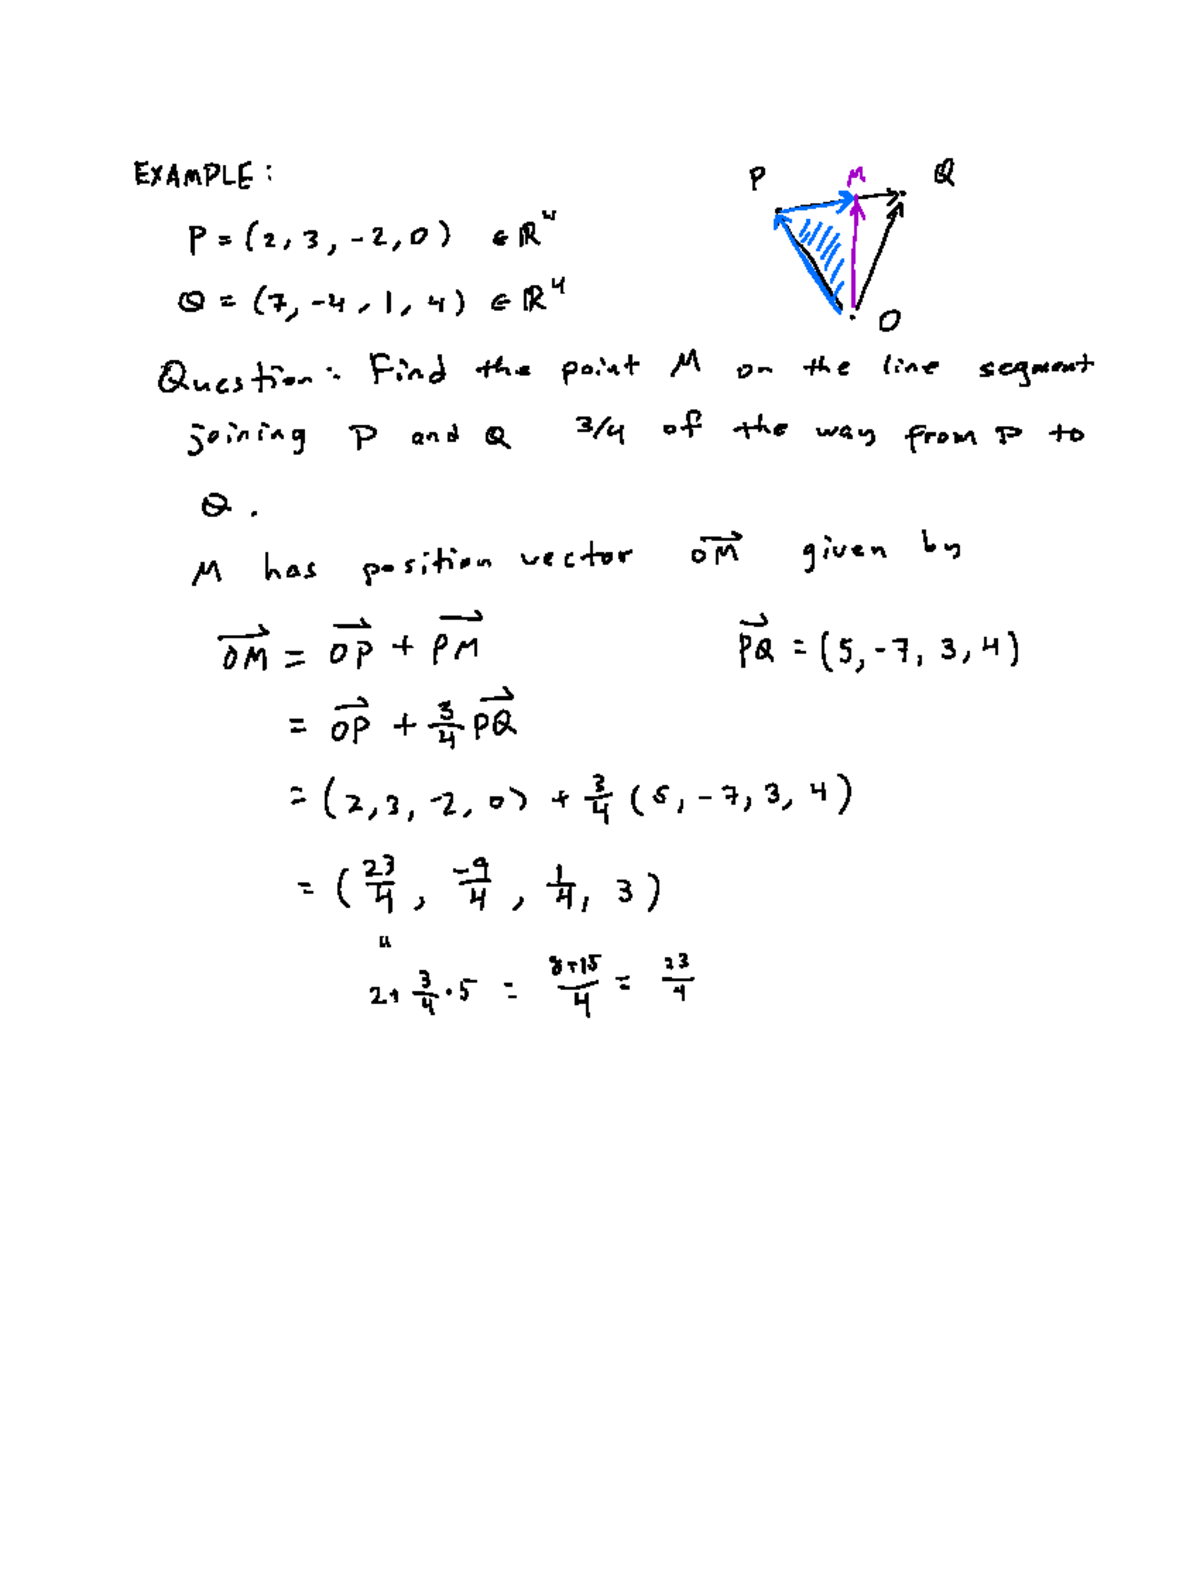 EXAMPLE:
P M Q
P = (2, 3, -2, 0) ∈ ℝ⁴
Q = (7, -4, 1, 4) ∈ ℝ⁴
O
Question: Find the point M on the line segment
joining P and Q 3/4 of the way from P to
Q.
M has position vector OM⃗ given by
OM⃗ = OP⃗ + PM⃗ PQ⃗ = (5, -7, 3, 4)
= OP⃗ + 3/4 PQ⃗
= (2, 3, -2, 0) + 3/4 (5, -7, 3, 4)
= (23/4, -9/4, 1/4, 3)
"
2 + 3/4 · 5 = 8+15/4 = 23/4